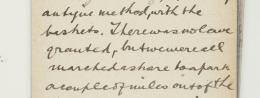 antique method, with the
baskets. There was no leave
granted, but we were all
marched ashore to a park
a couple of miles out of the